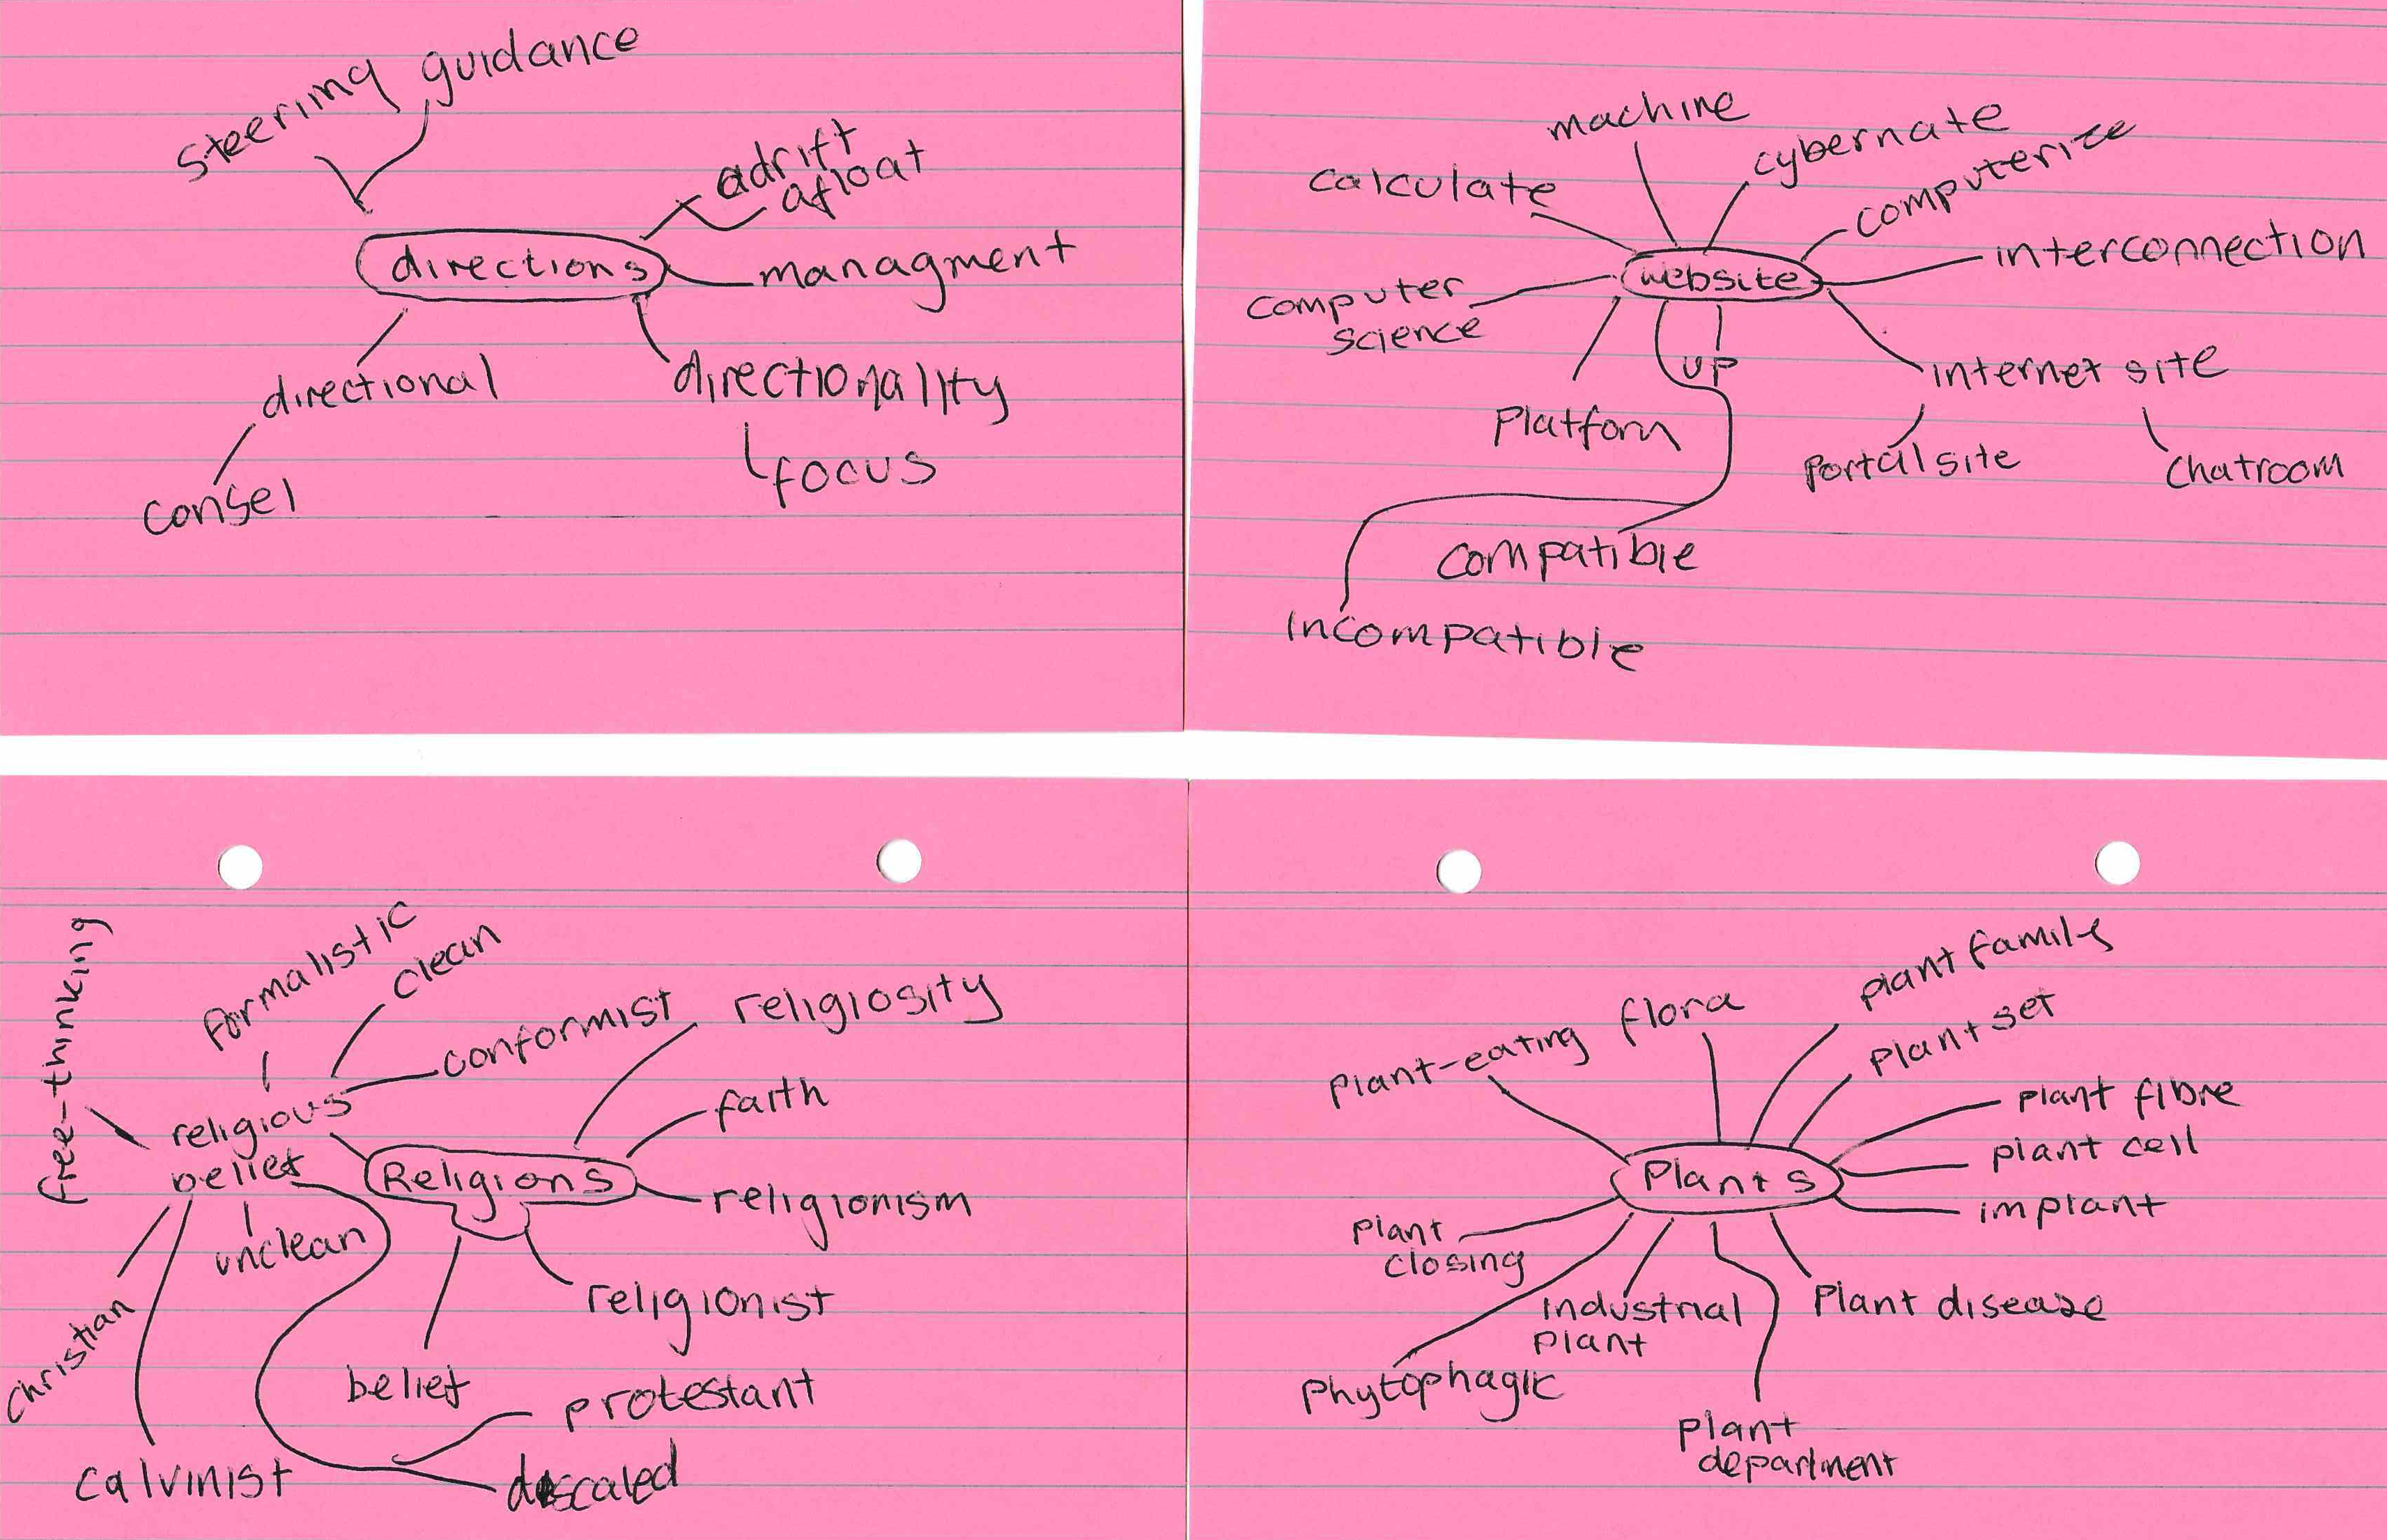 steering guidance
adrift
afloat
directions
managment
directional
directionality
consel
focus
machine
cybernate
calculate
computerize
website
interconnection
computer
science
up
internet site
platform
portal site
chatroom
compatible
incompatible
free-thinking
formalistic
clean
conformist
religiosity
religious
belief
faith
Religions
religionism
unclean
religionist
christian
belief
protestant
calvinist
plant family
flora
plant set
plant-eating
plant fibre
plant cell
Plants
implant
plant
closing
industrial
plant
Plant disease
phytophagic
plant
department